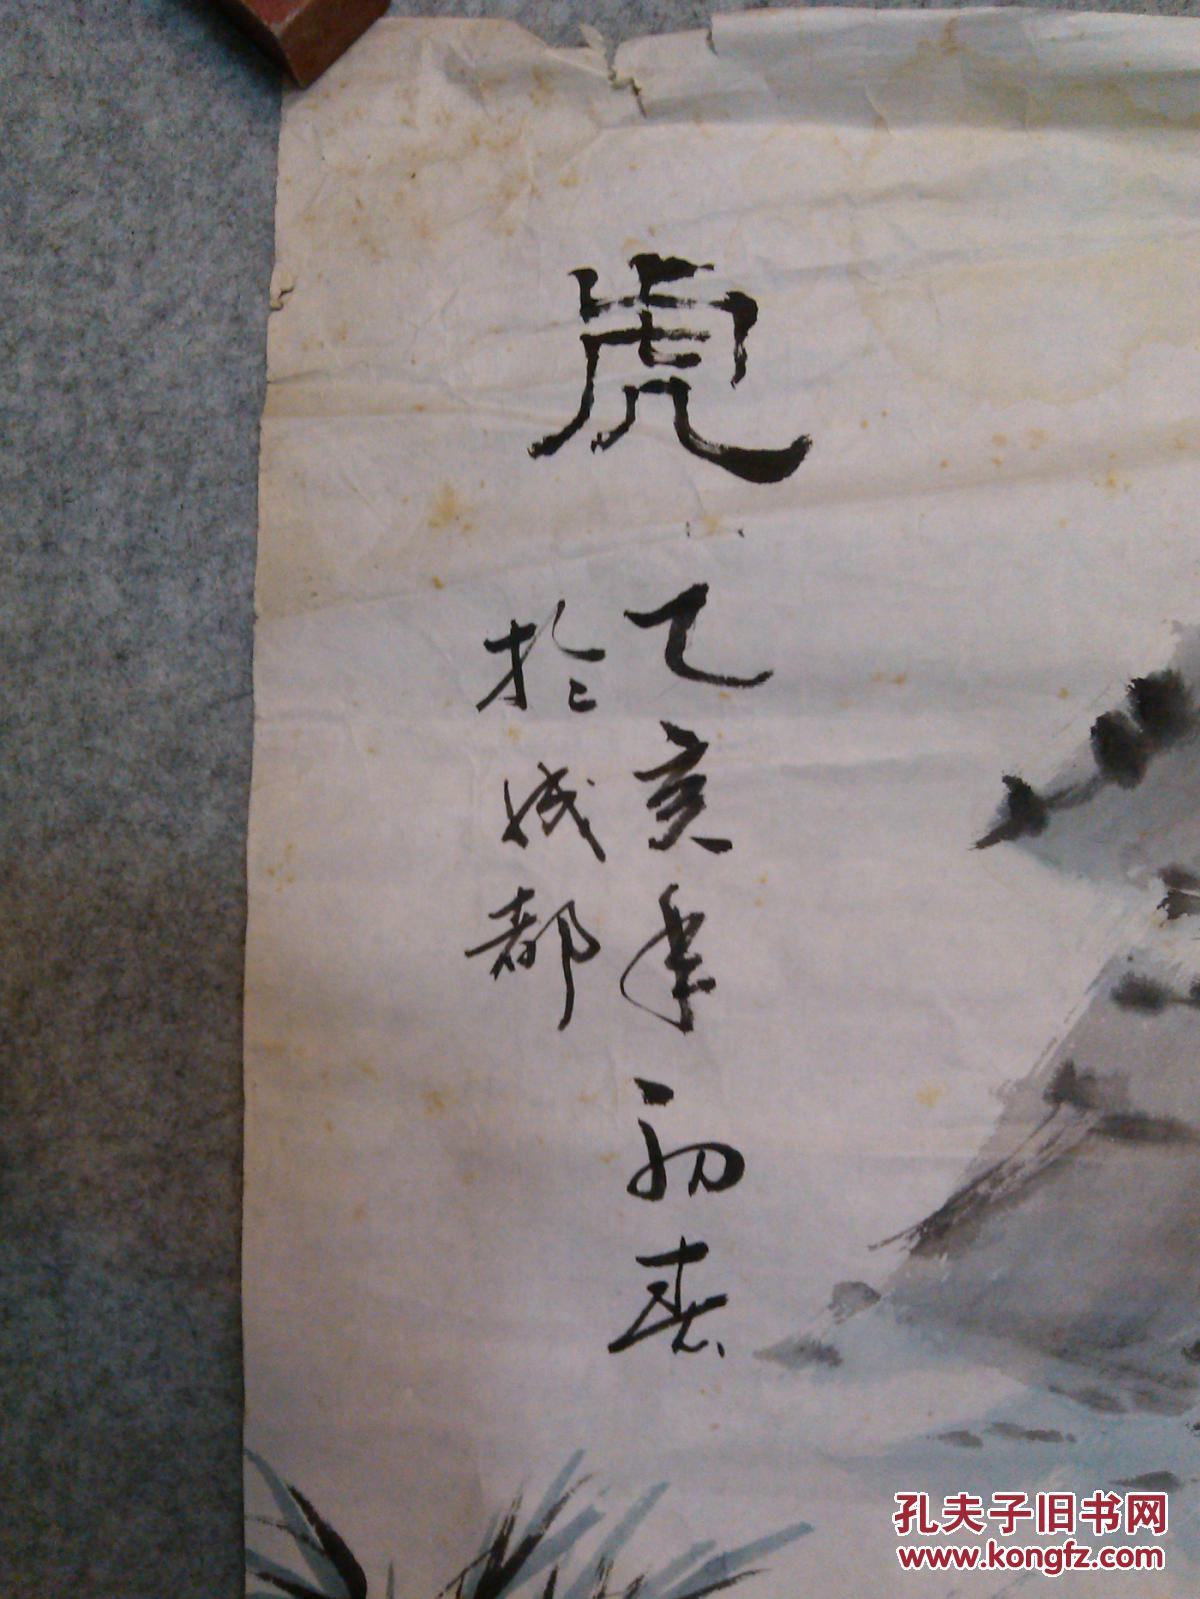 虎
乙亥年初春
於成都
孔夫子旧书网
www.kongfz.com